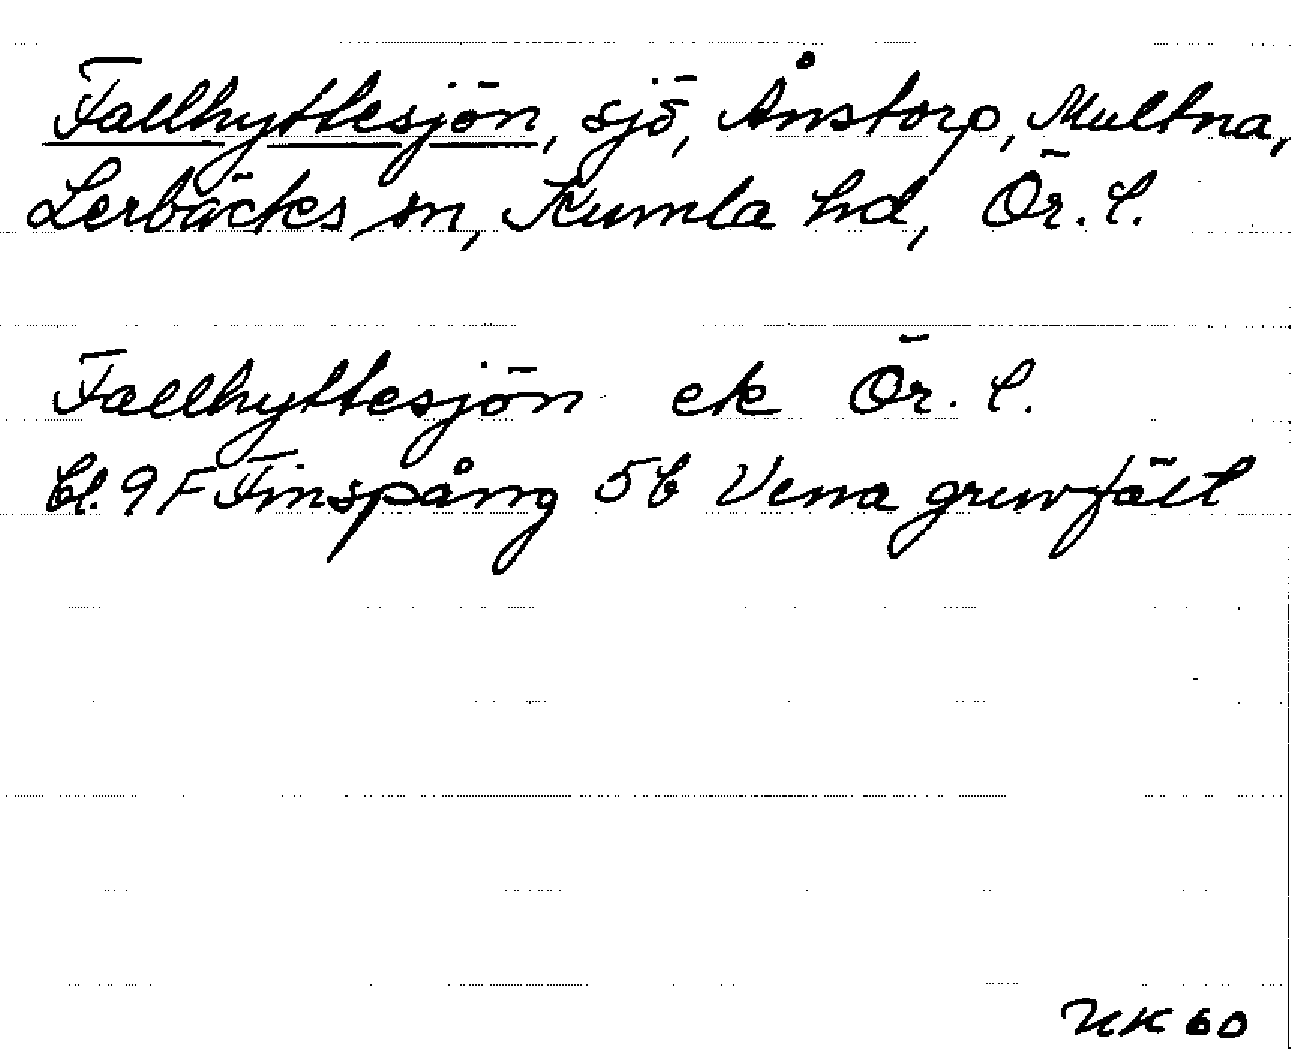 Fallhyttesjön, sjö, Ånstorp, Multna,
Lerbäcks sn, Kumla hd, Ör. l.
Fallhyttesjön ek Ör. l.
bl. 9 F Finspång 5b Vena gruvfält
NK 60